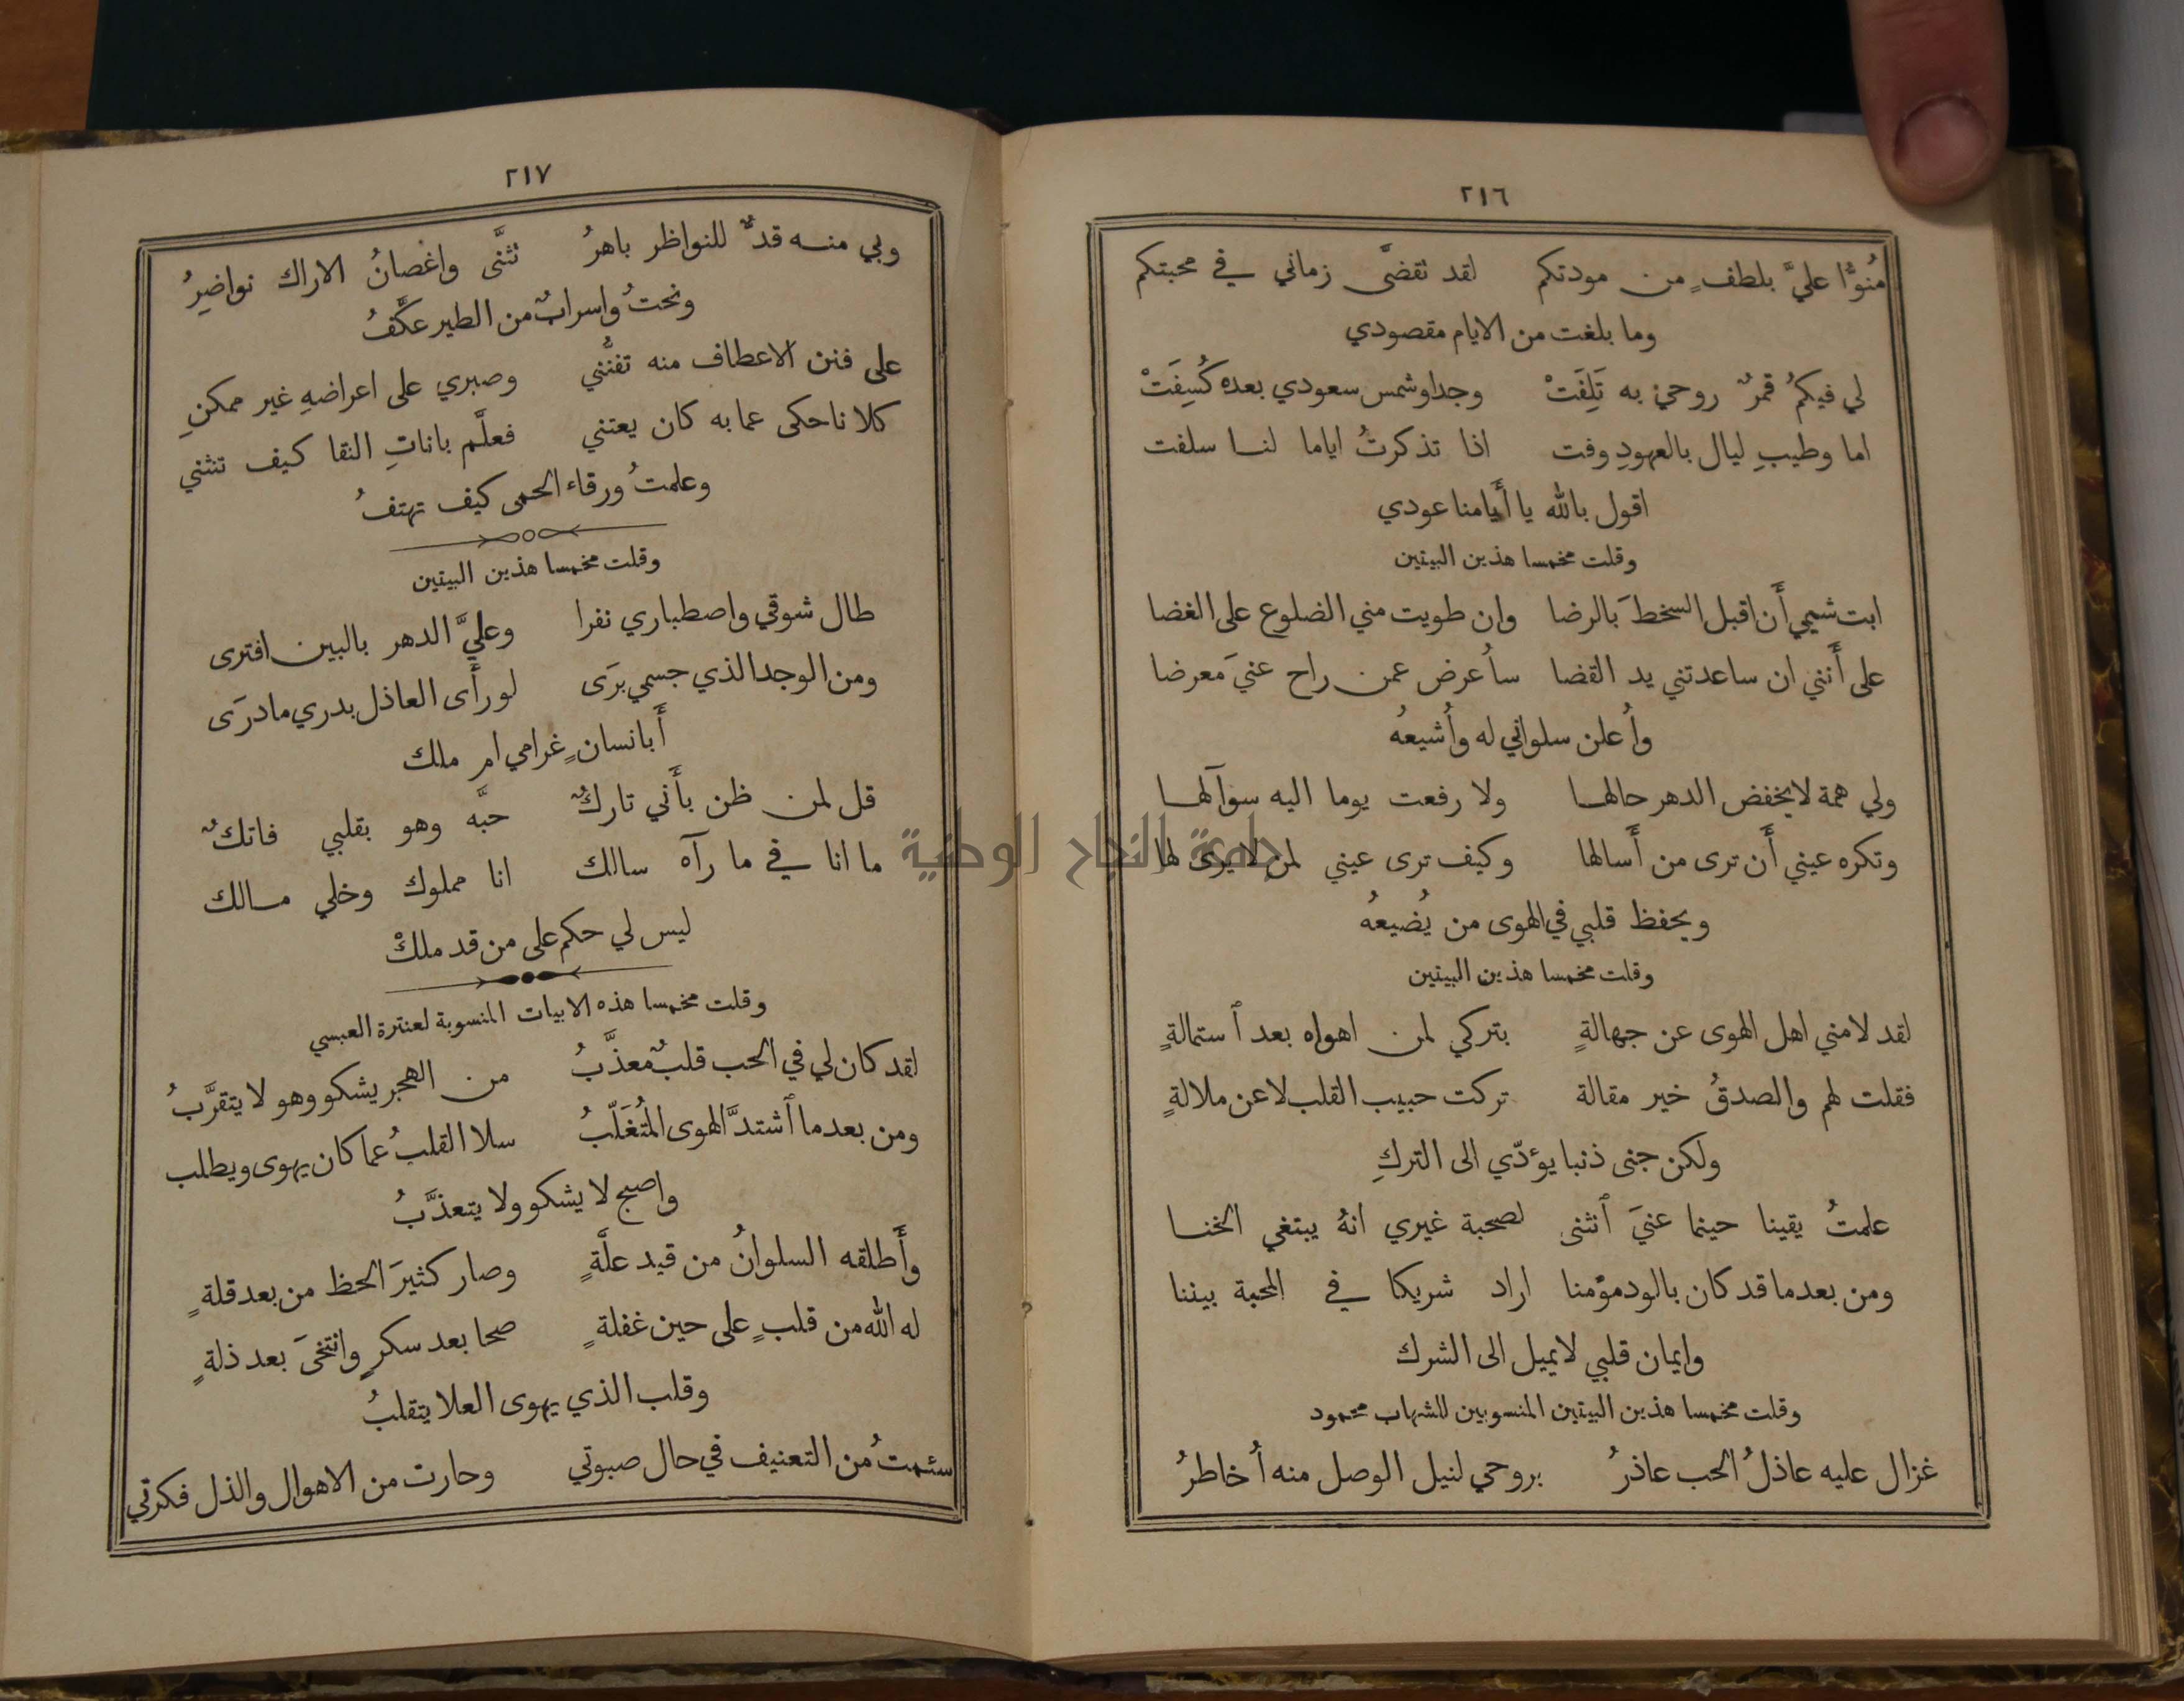 ٢١٦
مُنوُّا عليَّ بلطفٍ من مودتكم لقد نقضَّى زماني في محبتكم
وما بلغت من الايام مقصودي
لي فيكمُ قمرٌ روحي به تَلِفَتْ وجدا وشمس سعودي بعده كُسِفَتْ
اما وطيبِ ليال بالعهودِ وفت اذا تذكرتُ اياما لنا سلفت
اقول بالله يا أَيامنا عودي
وقلت مخمسا هذين البيتين
ابت شيمي أَن اقبل السخطَ بالرضا وان طويت مني الضلوع على الغضا
على أَنني ان ساعدتني يد القضا سأُعرض عمن راح عنيَ معرضا
وأُعلن سلواني له وأُشيعهُ
ولي همة لا يخفض الدهر حالها ولا رفعت يوما اليه سؤآلها
وتكره عيني أَن ترى من أَسالها وكيف ترى عيني لمن لا يرى لها
ويحفظ قلبي في الهوى من يُضيعهُ
وقلت مخمسا هذين البيتين
لقد لامني اهل الهوى عن جهالةٍ بتركي لمن اهواه بعد ٱستمالةٍ
فقلت لهم والصدقُ خير مقالة تركت حبيب القلب لا عن ملالةٍ
ولكن جنى ذنبا يوءدّي الى التركِ
علمتُ يقينا حينما عنيَ ٱنثنى لصحبة غيري انهُ يبتغي الخنا
ومن بعدما قد كان بالود مؤمنا اراد شريكا في المحبة بيننا
وايمان قلبي لا يميل الى الشرك
وقلت مخمسا هذين البيتين المنسوبين للشهاب محمود
غزال عليه عاذلُ الحب عاذرُ بروحي لنيل الوصل منه أُخاطرُ
جامعة النجاح الوطنية
٢١٧
وبي منه قدٌّ للنواظر باهرُ تثنَّى واغصانُ الاراك نواضِرُ
ونحتُ واسرابٌ من الطير عكَّفُ
على فنن الاعطاف منه تفنُّني وصبري على اعراضهِ غير ممكنِ
كلانا حكى عما به كان يعتني فعلَّم باناتِ النقا كيف تنثني
وعلمتُ ورقاء الحمى كيف تهتفُ
وقلت مخمسا هذين البيتين
طال شوقي واصطباري نفرا وعليَّ الدهر بالبين افترى
ومن الوجد الذي جسمي برَى لو رأَى العاذل بدري ما درَى
أَبانسانٍ غرامي ام ملك
قل لمن ظن بأَني تاركٌ حبَّه وهو بقلبي فاتكٌ
ما انا في ما رآه سالك انا مملوك وخلي مالك
ليس لي حكم على من قد ملكْ
وقلت مخمسا هذه الابيات المنسوبة لعنترة العبسي
لقد كان لي في الحب قلبٌ معذَّبُ من الهجر يشكو وهو لا يتقرَّبُ
ومن بعدما ٱشتدَّ الهوى المُتغَلّبُ سلا القلبُ عما كان يهوى ويطلب
واصبح لا يشكو ولا يتعذَّبُ
وأَطلقه السلوانُ من قيد علَّةٍ وصار كثيرَ الحظ من بعد قلةٍ
له الله من قلبٍ على حين غفلةٍ صحا بعد سكرٍ وانتخىَ بعد ذلةٍ
وقلب الذي يهوى العلا يتقلبُ
سئمتُ من التعنيف في حال صبوتي وحارت من الاهوال والذل فكرتي